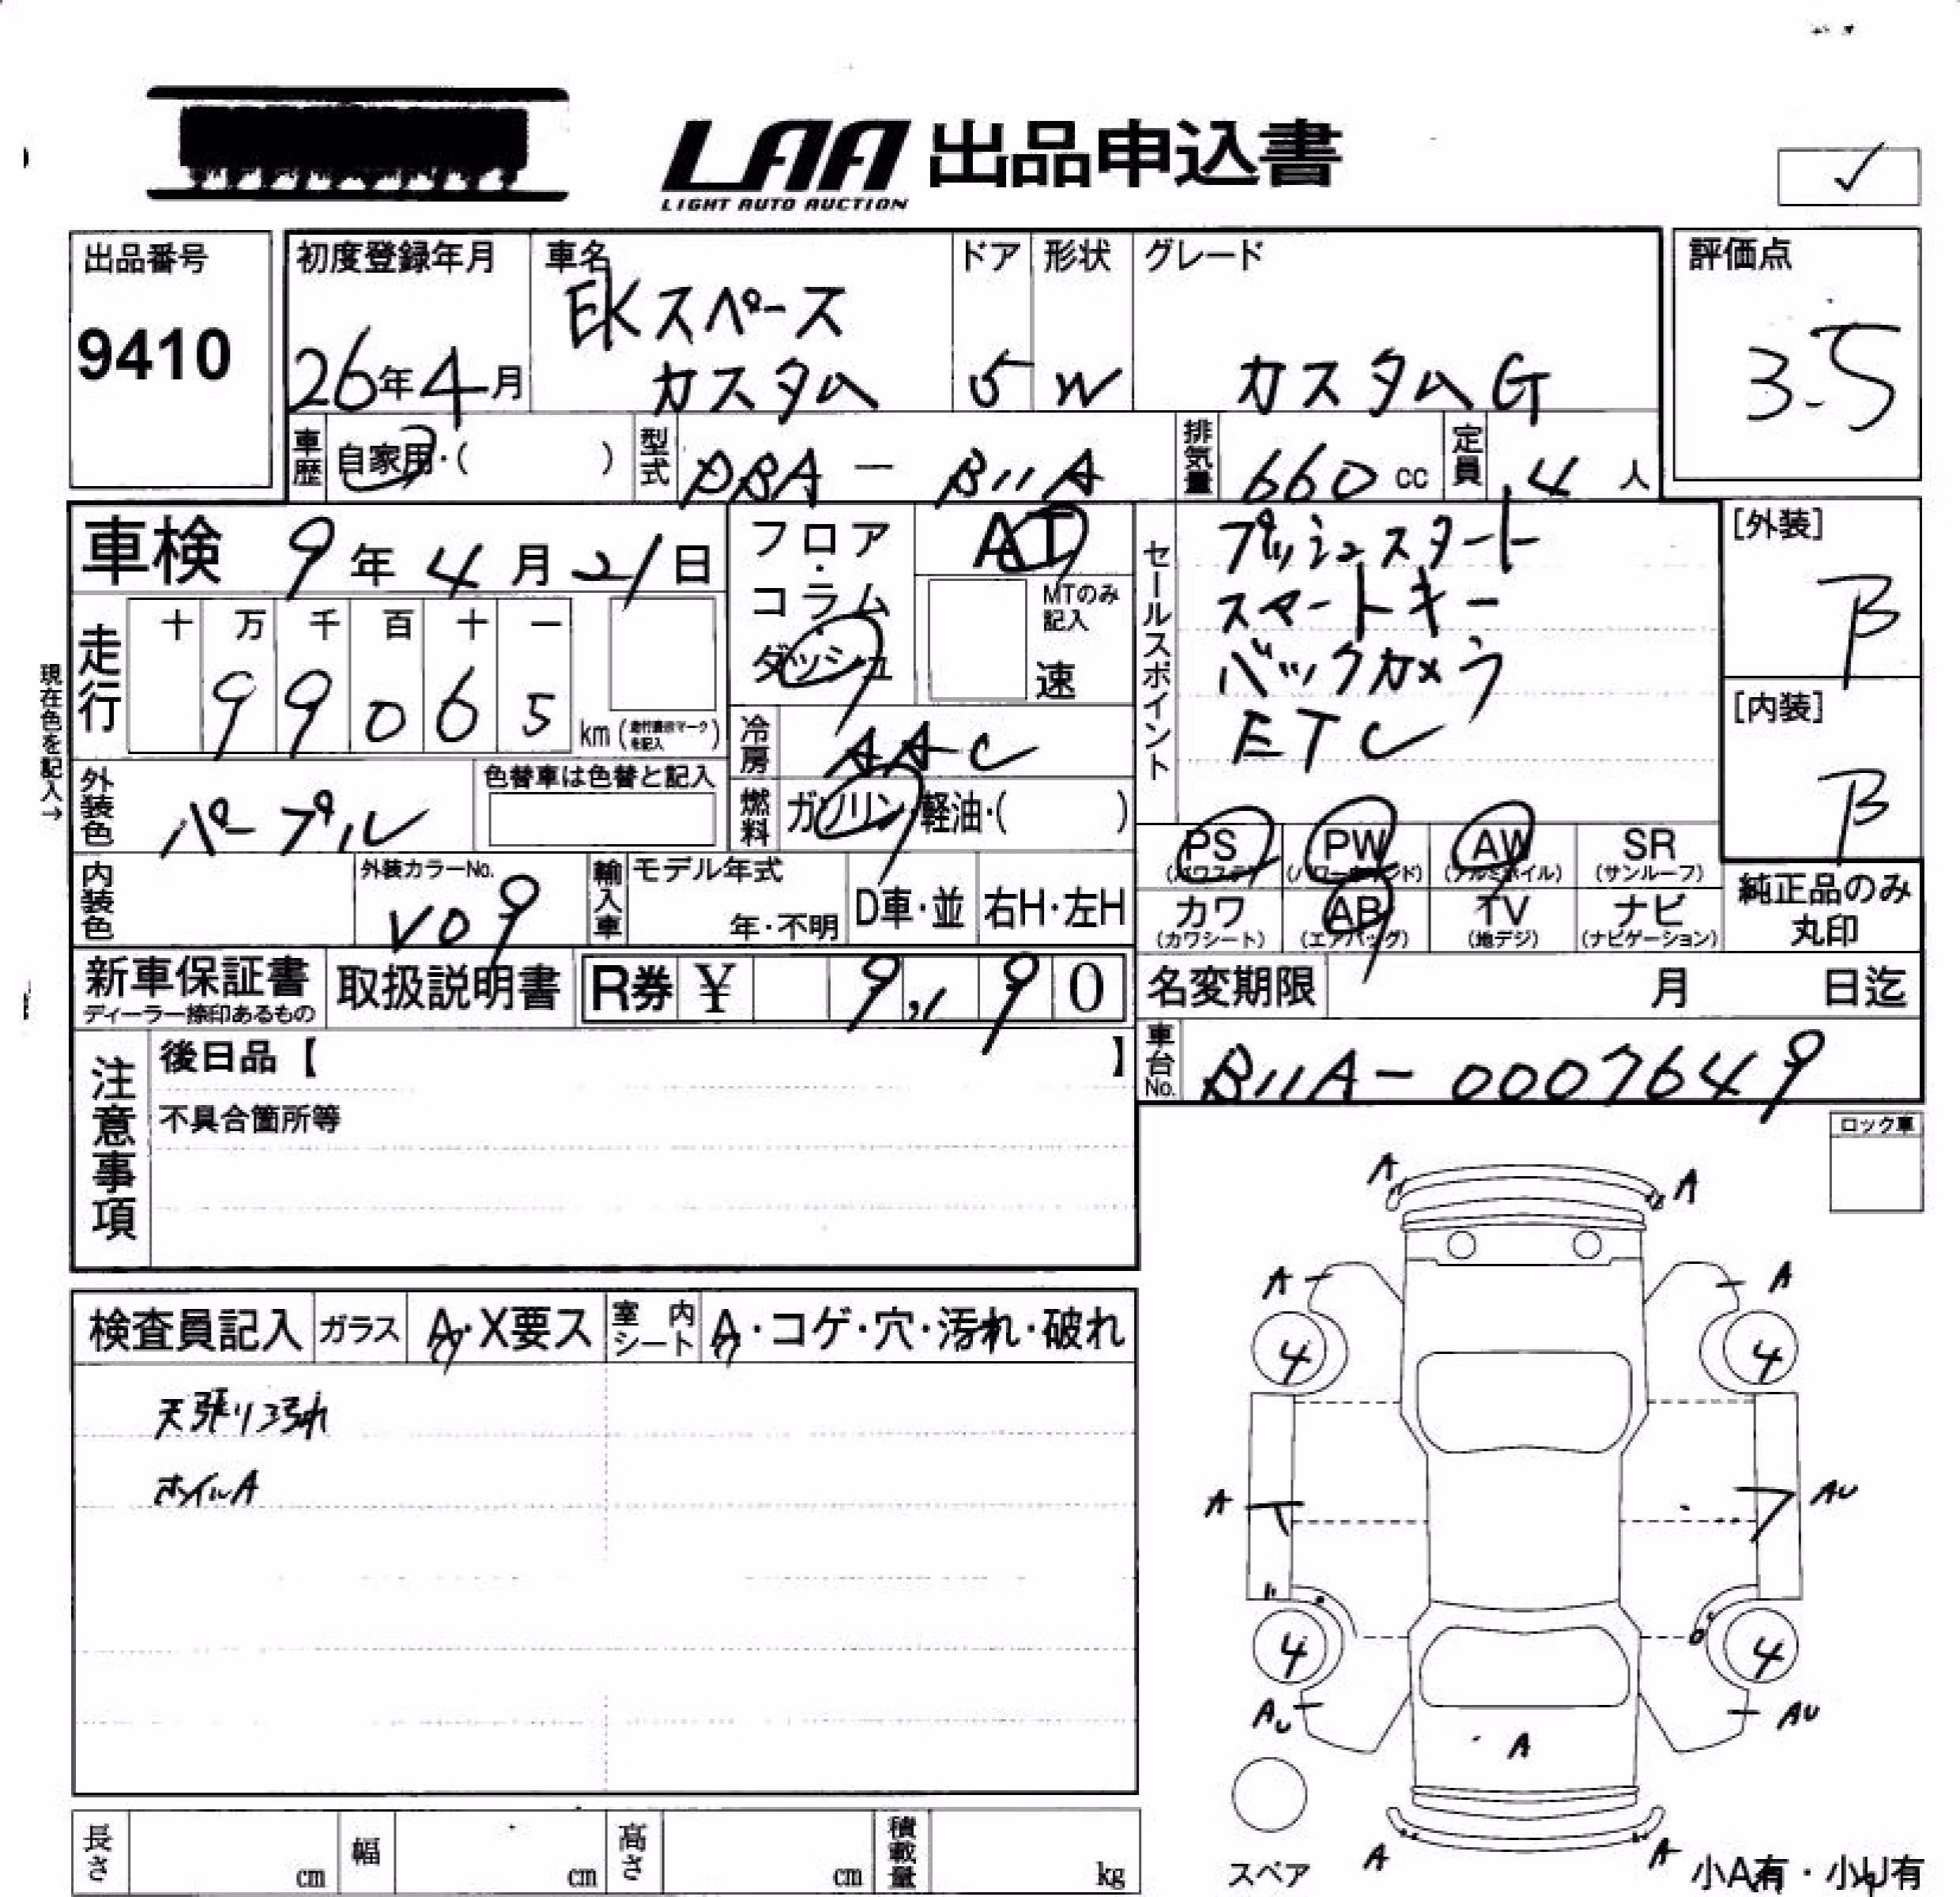 LAA 出品申込書
LIGHT AUTO AUCTION
✓
出品番号
9410
初度登録年月
26年4月
車名
EKスペース
カスタム
ドア
5
形状
W
グレード
カスタムG
評価点
3.5
車歴
自家用・( )
型式
DBA-B11A
排気量
660 cc
定員
4 人
車検 9年4月21日
フロア・コラム・ダッシュ
AT
MTのみ記入
速
セールスポイント
プッシュスタート
スマートキー
バックカメラ
ETC
[外装]
B
[内装]
B
現在色を記入→
走行
十 万 千 百 十 一
9 9 0 6 5
km
冷房
AAC
外装色
パープル
色替車は色替と記入
燃料
ガソリン・軽油・( )
PS
(パワステ)
PW
(パワーウィンド)
AW
(アルミホイル)
SR
(サンルーフ)
カワ
(カワシート)
AB
(エアバッグ)
TV
(地デジ)
ナビ
(ナビゲーション)
純正品のみ
丸印
内装色
外装カラーNo.
V09
輸入車
モデル年式
年・不明
D車・並
右H・左H
新車保証書
ディーラー捺印あるもの
取扱説明書
R券 ¥ 9,190
名変期限 月 日迄
車台No.
B11A-0007649
注意事項
後日品【 】
不具合箇所等
ロック車
検査員記入
ガラス
A・X要ス
室内シート
A・コゲ・穴・汚れ・破れ
天張り汚れ
ホイルA
A A
A A
4 4
A AU
4 4
AU AU
A
A A
スペア
小A有・小U有
長さ cm
幅 cm
高さ cm
積載量 kg